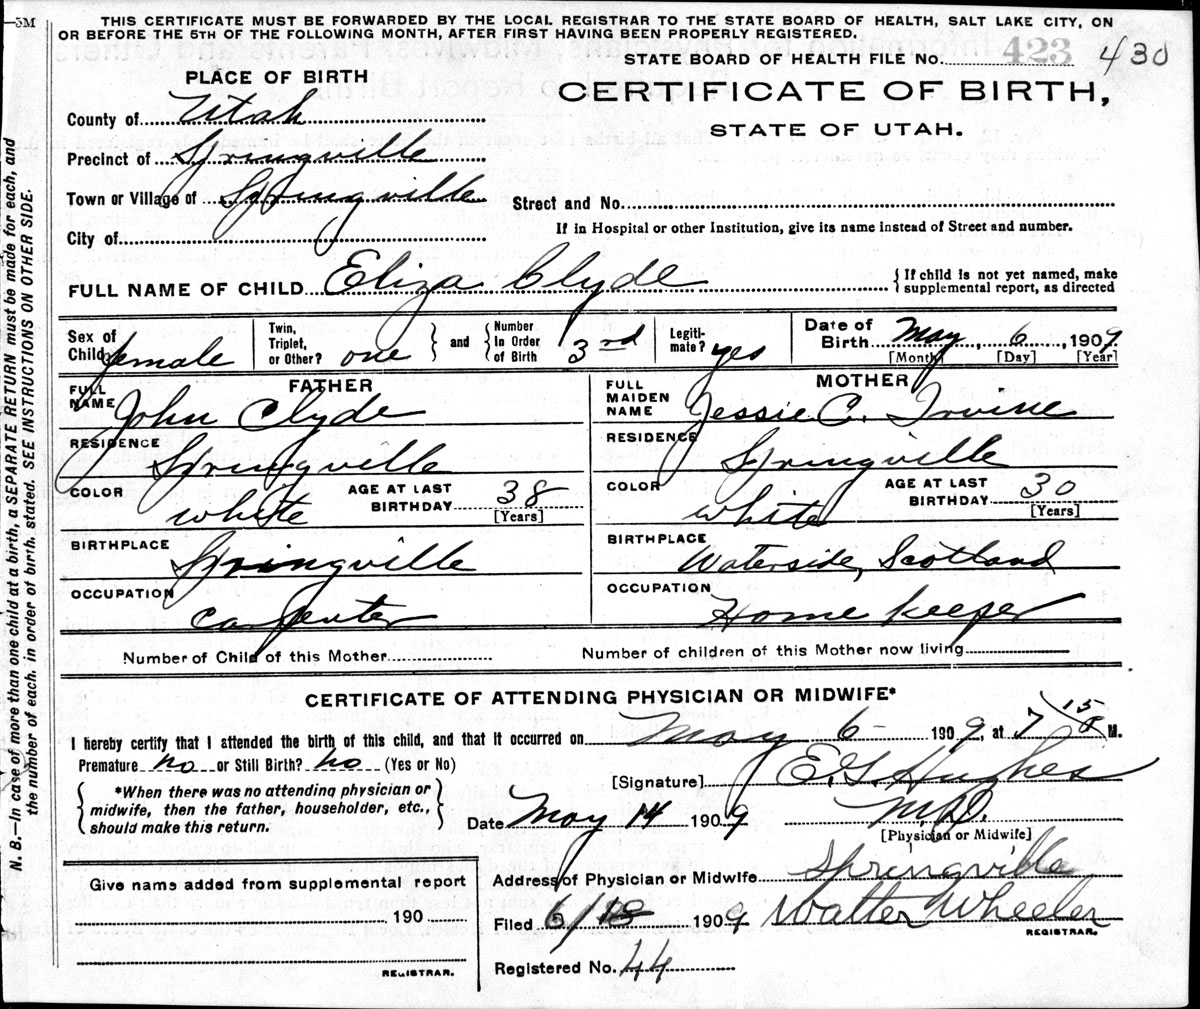 5M
THIS CERTIFICATE MUST BE FORWARDED BY THE LOCAL REGISTRAR TO THE STATE BOARD OF HEALTH, SALT LAKE CITY, ON
OR BEFORE THE 5TH OF THE FOLLOWING MONTH, AFTER FIRST HAVING BEEN PROPERLY REGISTERED.
STATE BOARD OF HEALTH FILE No. 423 430
PLACE OF BIRTH
CERTIFICATE OF BIRTH,
STATE OF UTAH.
County of Utah
Precinct of Springville
Town or Village of Springville
Street and No.
City of
If in Hospital or other Institution, give its name instead of Street and number.
FULL NAME OF CHILD Eliza Clyde
{If child is not yet named, make
supplemental report, as directed
Sex of Child female
Twin, Triplet, or Other? one } and { Number In Order of Birth 3rd
Legitimate? yes
Date of Birth May 6, 1909
[Month] [Day] [Year]
FATHER
FULL NAME John Clyde
RESIDENCE Springville
COLOR white
AGE AT LAST BIRTHDAY 38
[Years]
BIRTHPLACE Springville
OCCUPATION carpenter
MOTHER
FULL MAIDEN NAME Jessie C. Irvine
RESIDENCE Springville
COLOR white
AGE AT LAST BIRTHDAY 30
[Years]
BIRTHPLACE Waterside, Scotland
OCCUPATION Home keeper
Number of Child of this Mother
Number of children of this Mother now living
CERTIFICATE OF ATTENDING PHYSICIAN OR MIDWIFE*
I hereby certify that I attended the birth of this child, and that it occurred on May 6 - 1909, at 7 15 M.
Premature no or Still Birth? no (Yes or No)
[Signature] E. G. Hughes
{ *When there was no attending physician or
midwife, then the father, householder, etc.,
should make this return. }
Date May 14 1909
M.D.
[Physician or Midwife]
Address of Physician or Midwife Springville
Give name added from supplemental report
190
REGISTRAR.
Filed 1909 Walter Wheeler
REGISTRAR.
Registered No. 44
N. B.—In case of more than one child at a birth, a SEPARATE RETURN must be made for each, and
the number of each, in order of birth, stated. SEE INSTRUCTIONS ON OTHER SIDE.